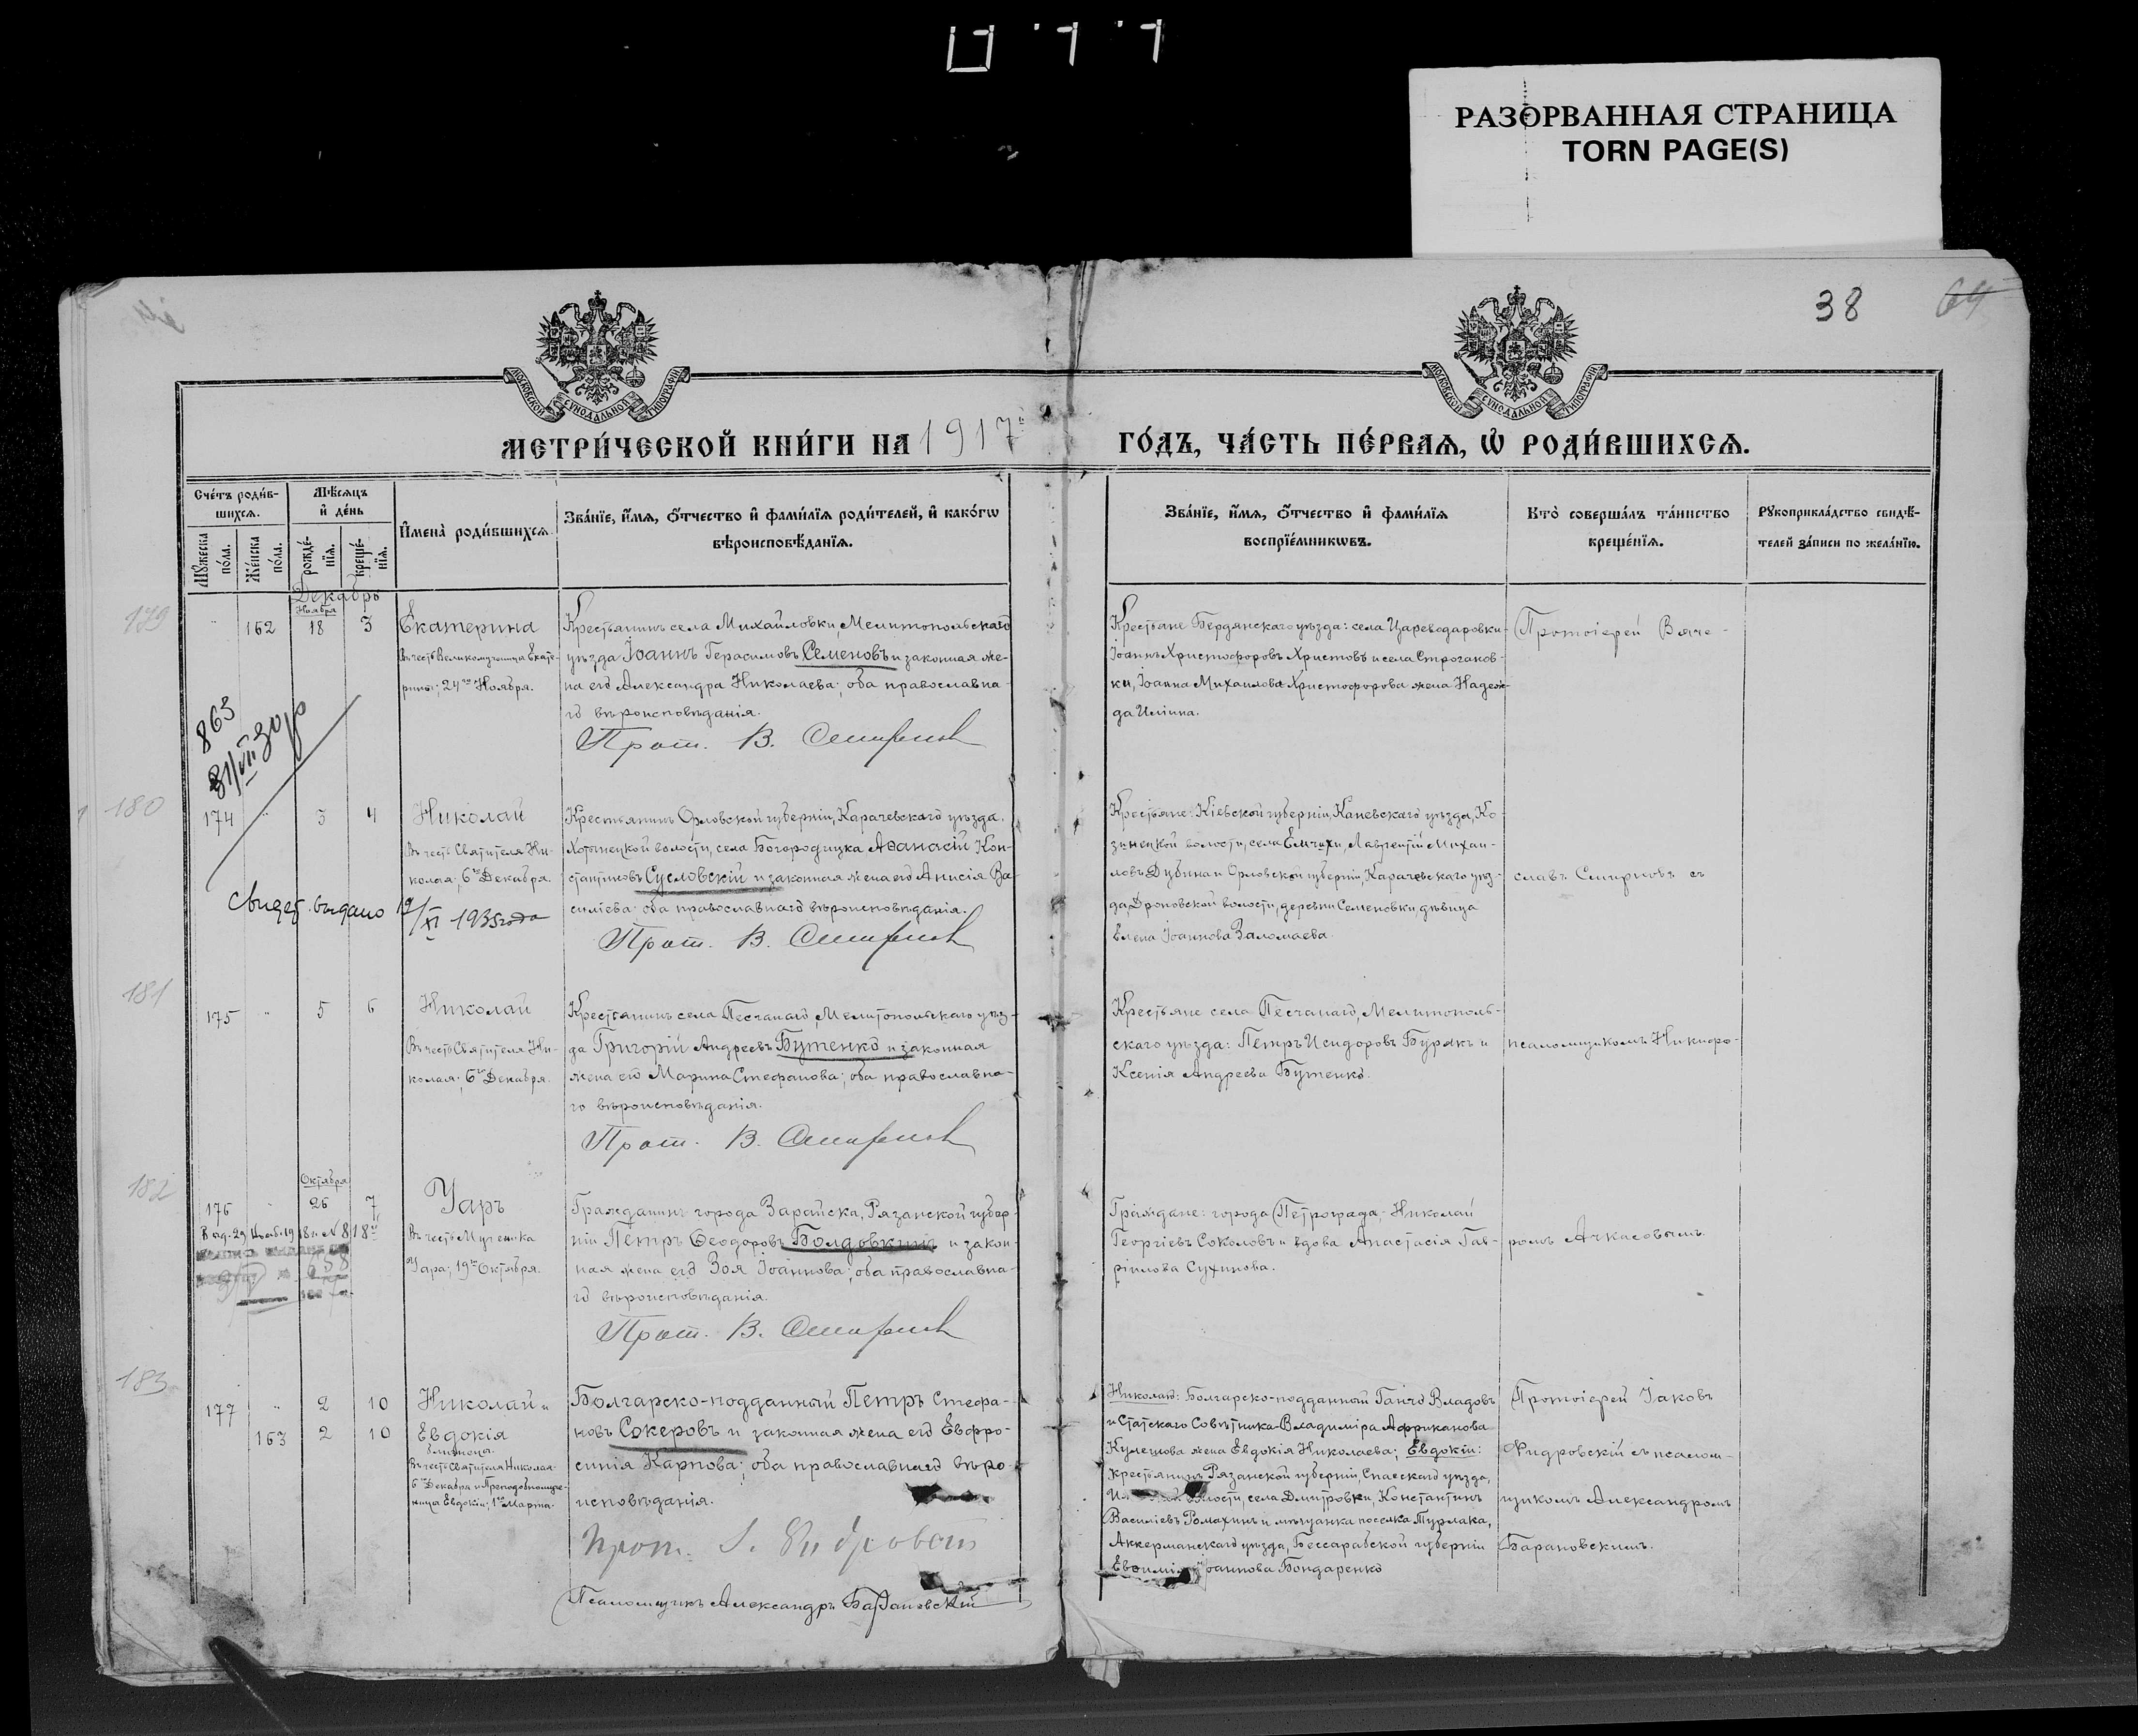 РАЗОРВАННАЯ СТРАНИЦА
TORN PAGE(S)
38 64
МОСКОВСКОЙ СѴНОДАЛЬНОЙ ТИПОГРАФІИ
МОСКОВСКОЙ СѴНОДАЛЬНОЙ ТИПОГРАФІИ
МЕТРИ́ЧЕСКОЙ КНИ́ГИ НА 1917й ГО́ДЪ, ЧА́СТЬ ПЕ́РВАѦ, Ѡ҆ РОДИ́ВШИХСѦ.
Сче́тъ роди́в-
шихсѧ.
Мꙋжеска по́ла.
Же́нска по́ла.
Мѣ́сѧцъ
и҆ де́нь
рожде́-
нїѧ.
креще́-
нїѧ.
И҆мена̀ роди́вшихсѧ
Зва́нїе, и҆́мѧ, ѻ҆́тчество и҆ фами́лїѧ роди́телей, и҆ како́гѡ
вѣроисповѣ́данїѧ.
Зва́нїе, и҆́мѧ, ѻ҆́тчество и҆ фами́лїѧ
воспрїе́мникѡвъ.
Кто̀ соверша́лъ та́инство
креще́нїѧ.
Рꙋкоприкла́дство свидѣ́-
телей за́писи по жела́нїю.
Декабрь
179
Ноября
162 18 3
Екатерина
Въ честь Великомученицы Екате-
рины; 24го Ноября.
Крестьянинъ села Михайловки, Мелитопольскаго
уѣзда Іоаннъ Герасимовъ Семеновъ и законная же-
на его Александра Николаева; оба православна-
го вѣроисповѣданія.
Прот. В. Смирнов
Крестьяне Бердянскаго уѣзда: села Цареводаровки-
Іоаннъ Христофоровъ Христовъ и села Строганов-
ки, Іоанна Михаилова Христофорова жена Надеж-
да Илiина.
Протоіерей Вяче-
863
31/VII 30 р
180
174 " 3 4
Николай
Въ честь Святителя Ни-
колая; 6го Декабря.
Свидет. выдано 19/XI 1935 года
Крестьянинъ Орловской губерніи, Карачевскаго уѣзда,
Хотынецкой волости, села Богородицка Аѳанасій Кон-
стантиновъ Сусловскій и законная жена его Анисія Ва-
силіева; оба православнаго вѣроисповѣданія.
Прот. В. Смирнов
Крестьяне: Кіевской губерніи, Каневскаго уѣзда, Ко-
зинецкой волости, села Емчихи, Лаврентій Михаи-
ловъ Дубина и Орловской губерніи, Карачевскаго уѣз-
да, Дроновской волости, деревни Семеновки, дѣвица
Елена Іоаннова Заломаева.
славъ Смирновъ съ
181
175 " 5 6
Николай
Въ честь Святителя Ни-
колая; 6го Декабря.
Крестьянинъ села Песчанаго, Мелитопольскаго уѣз-
да Григорій Андреевъ Бутенко и законная
жена его Марина Стефанова; оба православна-
го вѣроисповѣданія.
Прот. В. Смирнов
Крестьяне села Песчанаго, Мелитополь-
скаго уѣзда: Петръ Исидоровъ Бурякъ и
Ксенія Андреева Бутенко.
псаломщикомъ Никифо-
182
Октября
176 " 26 7
Уаръ
Въ честь Мученика
Уара; 19го Октября.
Гражданинъ города Зарайска, Рязанской губер-
ніи Петръ Ѳеодоровъ Болдовкинъ и закон-
ная жена его Зоя Іоаннова; оба православна-
го вѣроисповѣданія.
Прот. В. Смирнов
Граждане: города Петрограда,- Николай
Георгіевъ Соколовъ и вдова Анастасія Гав-
ріилова Сухинова.
ромъ Ачкасовымъ.
183
177 " 2 10
163 2 10
Николай и
Евдокія
близнецы.
Въ честь Святителя Николая-
6го Декабря и Преподобномуче-
ницы Евдокіи; 1го Марта.
Болгарско-подданный Петръ Стефа-
новъ Сокеровъ и законная жена его Евфро-
синія Карпова; оба православнаго вѣро-
исповѣданія.
Псаломщикъ Александръ Барановскій
Николая: Болгарско-подданный Ганчо Владовъ
и Статскаго Совѣтника Владиміра Африканова
Кулешова жена Евдокія Николаева; Евдокіи:
крестьянинъ Рязанской губерніи, Спасскаго уѣзда,
волости, села Дмитровки, Константинъ
Василіевъ Ромахинъ и мѣщанка поселка Турлака,
Аккерманскаго уѣзда, Бессарабской губерніи
Евѳимія Іоаннова Бондаренко
Протоіерей Іаковъ
Фидровскій съ псалом-
щикомъ Александромъ
Барановскимъ.